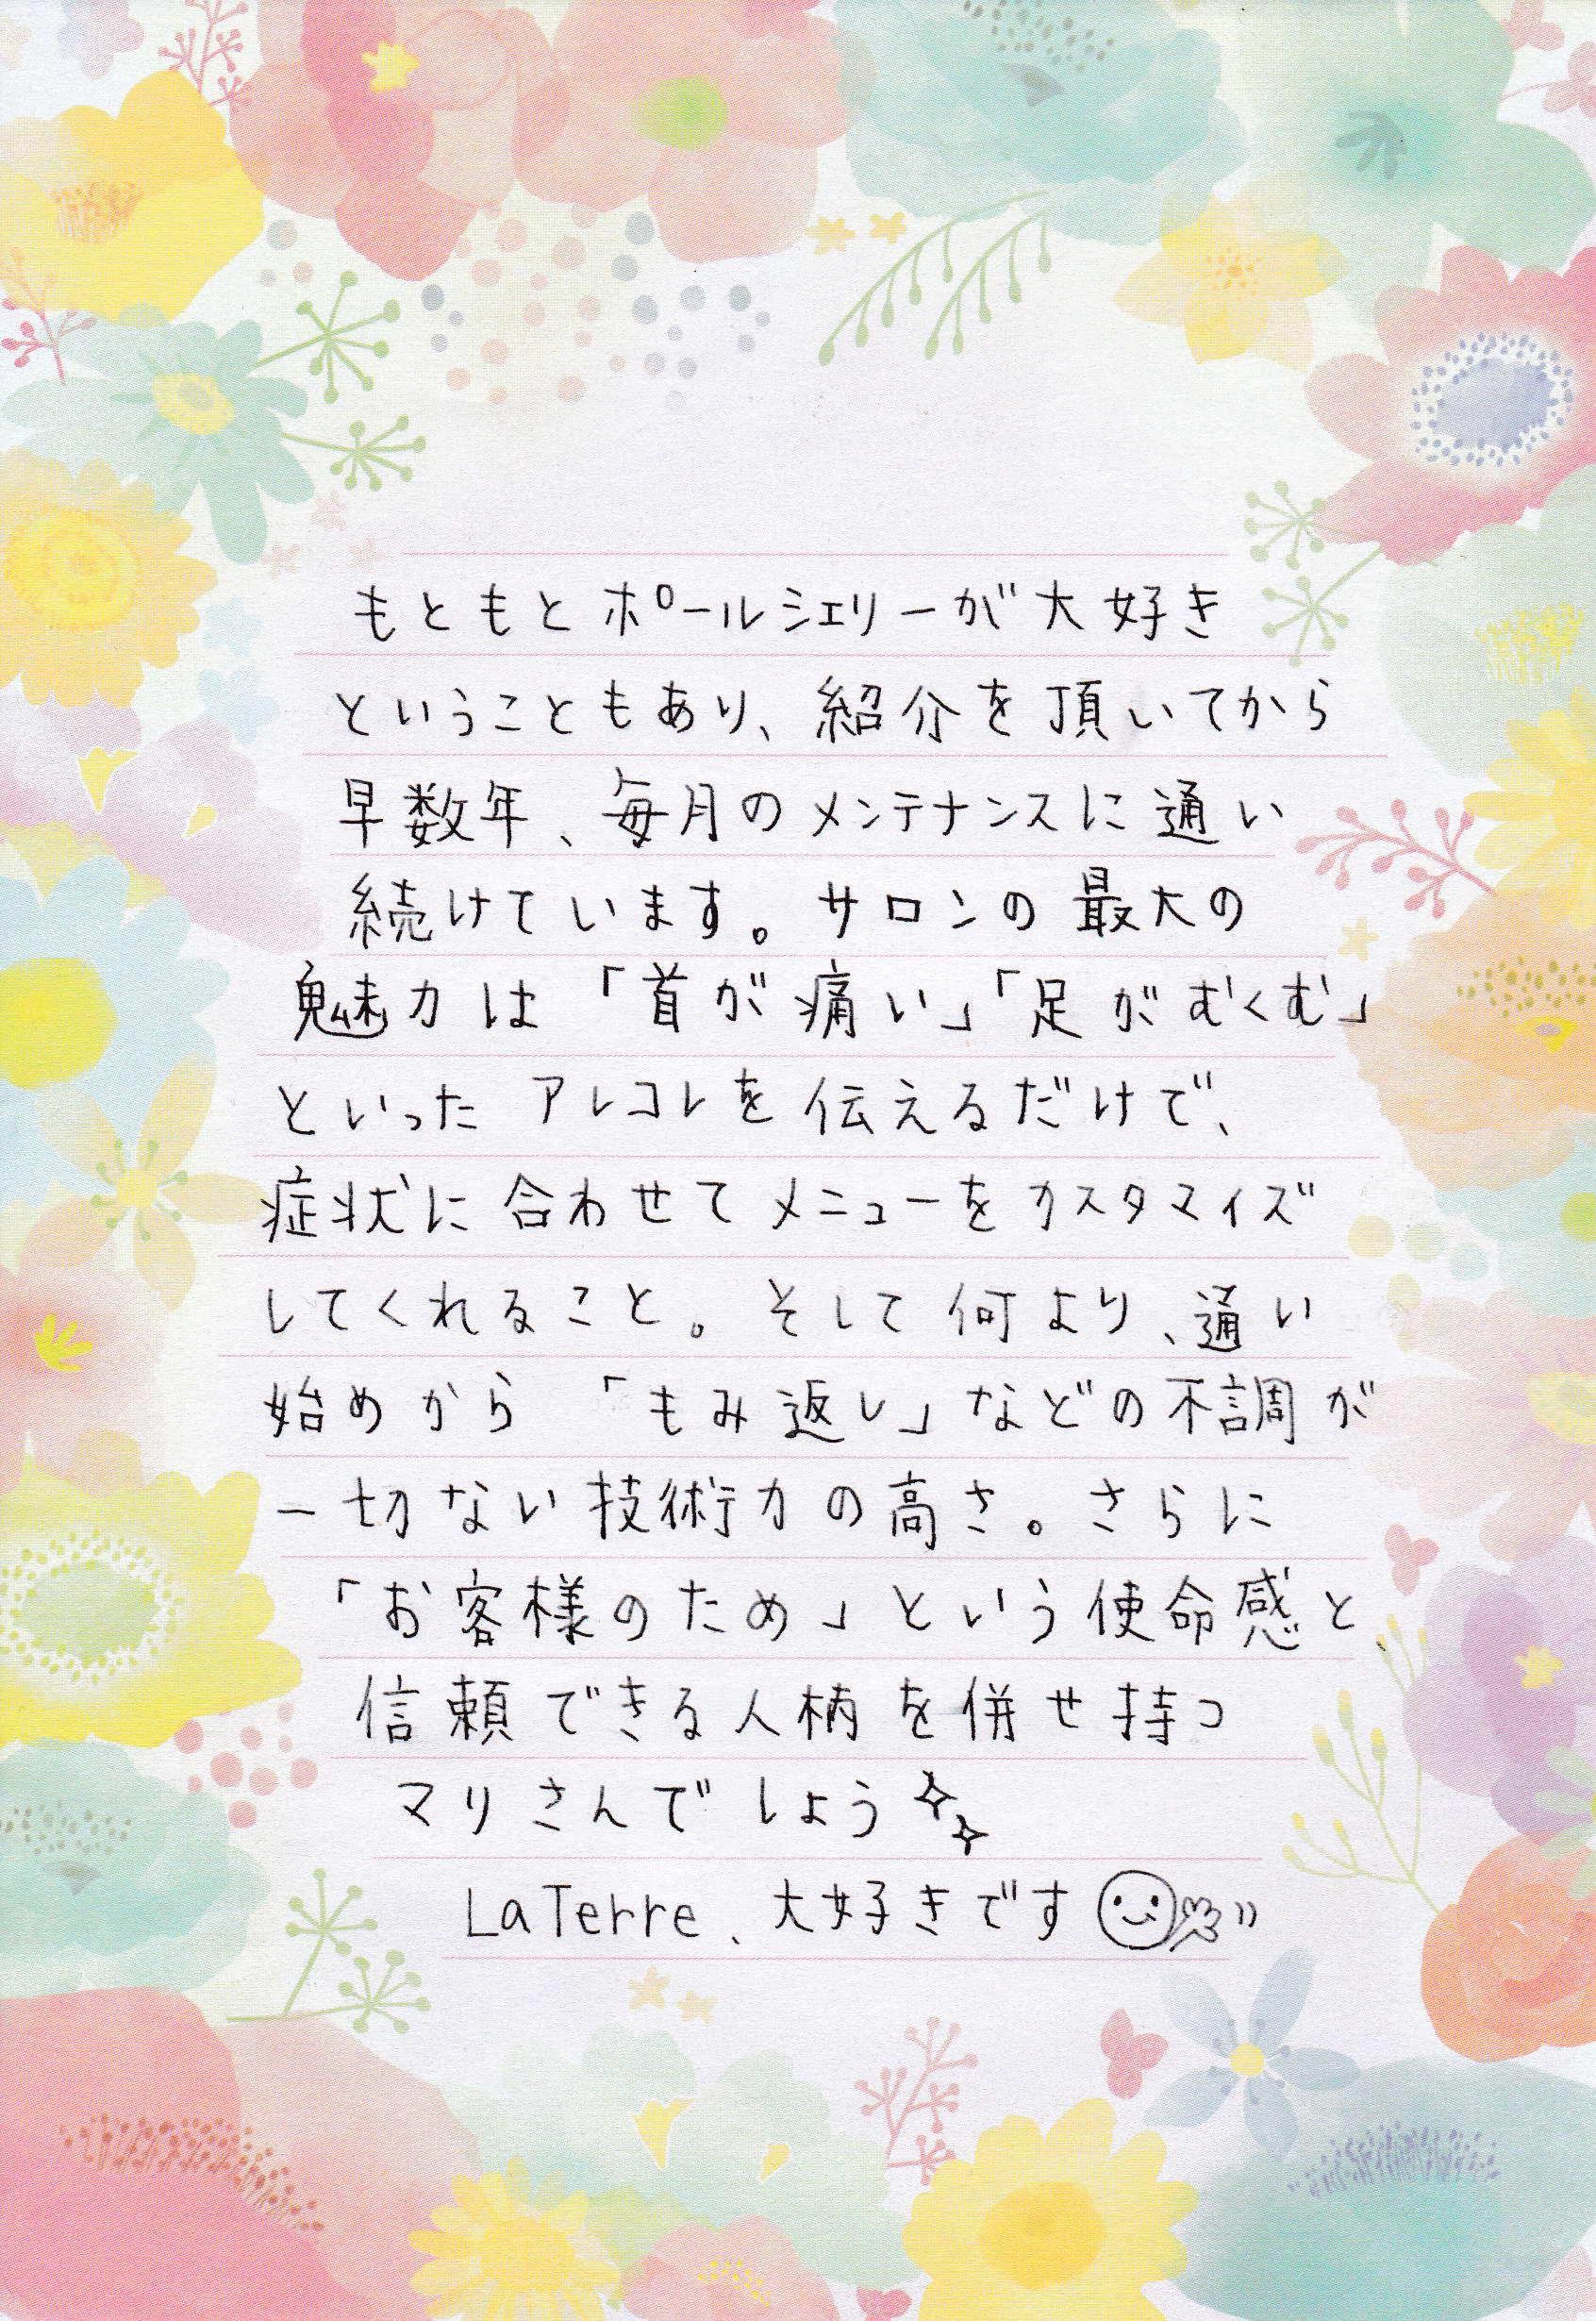 もともとポールシェリーが大好き
ということもあり、紹介を頂いてから
早数年、毎月のメンテナンスに通い
続けています。サロンの最大の
魅力は「首が痛い」「足がむくむ」
といったアレコレを伝えるだけで、
症状に合わせてメニューをカスタマイズ
してくれること。そして何より、通い
始めから「もみ返し」などの不調が
一切ない技術力の高さ。さらに
「お客様のため」という使命感と、
信頼できる人柄を併せ持つ
マリさんでしょう
La Terre、大好きです